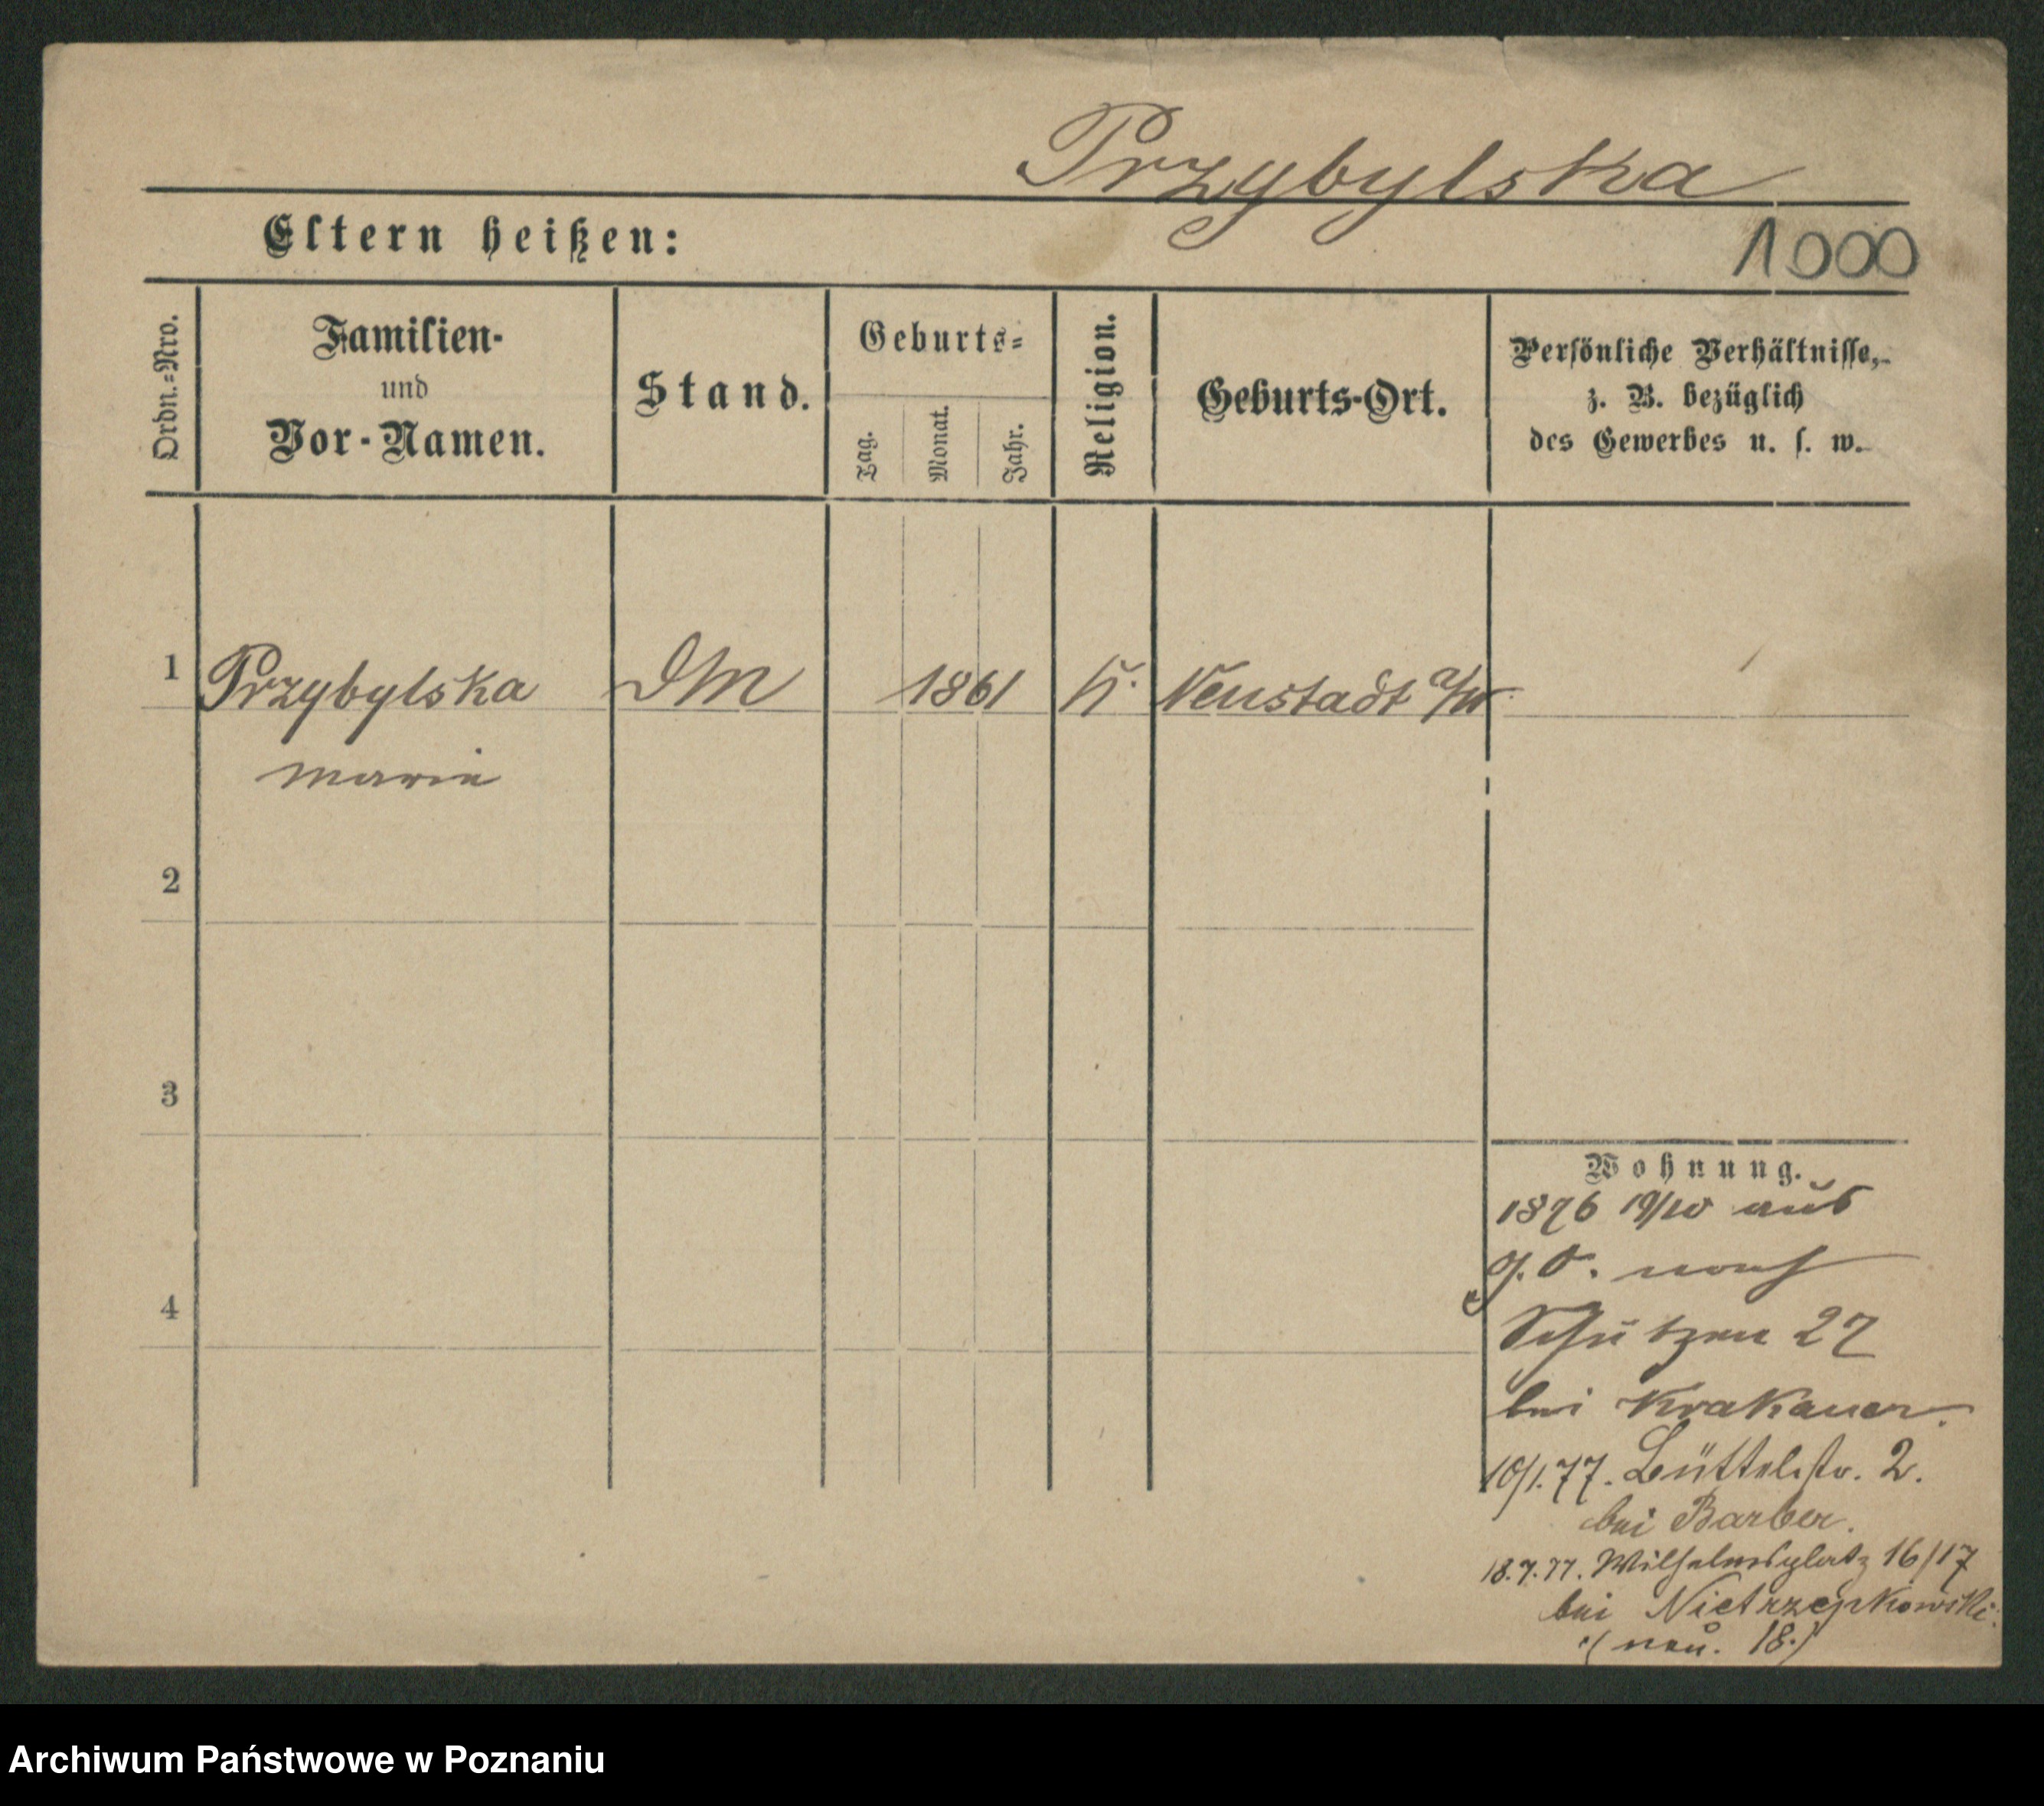 Przybylska
Eltern heißen:
1000
Ordn.=Nro.
Familien-
und
Vor-Namen.
Stand.
Geburts=
Tag.
Monat.
Jahr.
Religion.
Geburts-Ort.
Persönliche Verhältnisse,
z. B. bezüglich
des Gewerbes u. s. w.
1
Przybylska DM 1861 K. Neustadt a/W
Marie
2
3
4
Wohnung.
1876 19/10 aus
g. O. nach
Schützen 27
bei Krakauer.
10/1.77. Büttelstr. 2.
bei Barber.
18.7.77. Wilhelmsplatz 16/17
bei Nietrzepkowski.
(neu. 18.)
Archiwum Państwowe w Poznaniu